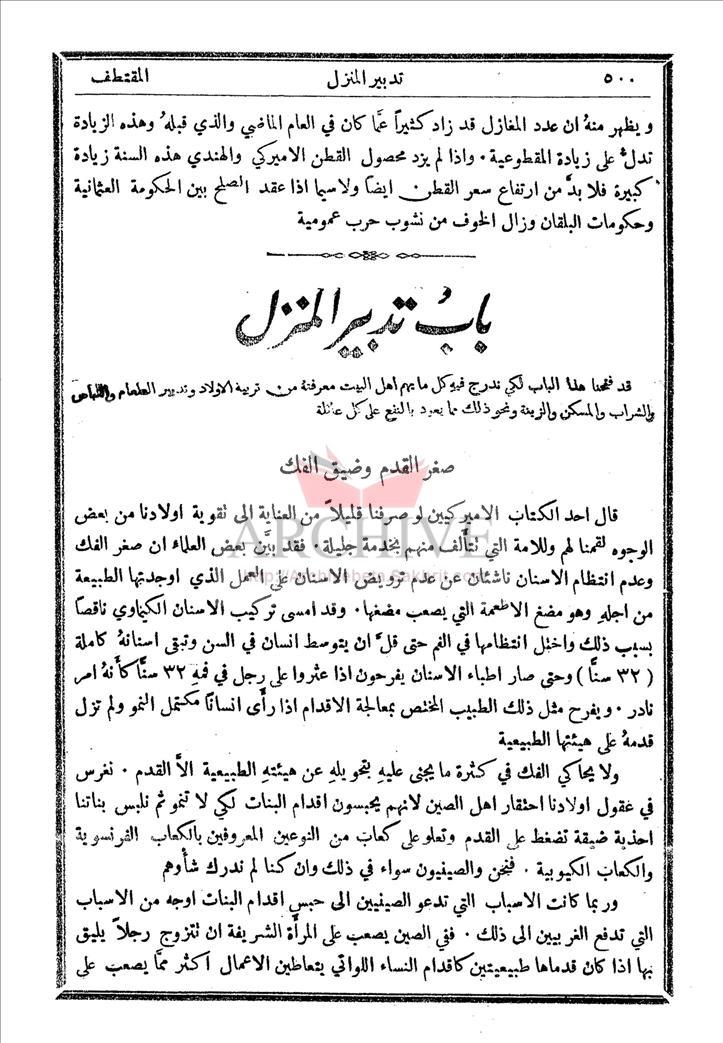 ٥٠٠ تدبير المنزل المقتطف
ويظهر منهُ ان عدد المغازل قد زاد كثيراً عمَّا كان في العام الماضي والذي قبلهُ وهذه الزيادة
تدلُّ على زيادة المقطوعية . واذا لم يزد محصول القطن الاميركي والهندي هذه السنة زيادة
كبيرة فلا بدَّ من ارتفاع سعر القطن ايضاً ولاسيما اذا عقد الصلح بين الحكومة العثمانية
وحكومات البلقان وزال الخوف من نشوب حرب عمومية
باب تدبير المنزل
قد فتحنا هذا الباب لكي ندرج فيه كل ما يهم اهل البيت معرفته من تربية الاولاد وتدبير الطعام واللباس
والشراب والمسكن والزينة ونحو ذلك مما يعود بالنفع على كل عائلة
صغر القدم وضيق الفك
قال احد الكتاب الاميركيين لو صرفنا قليلاً من العناية الى تقوية اولادنا من بعض
الوجوه لقمنا لهم وللامة التي تتألف منهم بخدمة جليلة . فقد بيَّن بعض العلماء ان صغر الفك
وعدم انتظام الاسنان ناشئان عن عدم ترويض الاسنان على العمل الذي اوجدتها الطبيعة
من اجله وهو مضغ الاطعمة التي يصعب مضغها . وقد امسى تركيب الاسنان الكيماوي ناقصاً
بسبب ذلك واختل انتظامها في الفم حتى قلَّ ان يتوسط انسان في السن وتبقى اسنانهُ كاملة
( ٣٢ سنًّا ) وحتى صار اطباء الاسنان يفرحون اذا عثروا على رجل في فمهِ ٣٢ سنًّا كأنهُ امر
نادر . ويفرح مثل ذلك الطبيب المختص بمعالجة الاقدام اذا رأَى انساناً مكتمل النمو ولم تزل
قدمهُ على هيئتها الطبيعية
ولا يحاكي الفك في كثرة ما يجنى عليهِ بتحويلهِ عن هيئتهِ الطبيعية الاَّ القدم . نغرس
في عقول اولادنا احتقار اهل الصين لانهم يحبسون اقدام البنات لكي لا تنمو ثم نلبس بناتنا
احذية ضيقة تضغط على القدم وتعلو على كعاب من النوعين المعروفين بالكعاب الفرنسوية
والكعاب الكيوبية . فنحن والصينيون سواء في ذلك وان كنا لم ندرك شأوهم
وربما كانت الاسباب التي تدعو الصينيين الى حبس اقدام البنات اوجه من الاسباب
التي تدفع الغربيين الى ذلك . ففي الصين يصعب على المرأَة الشريفة ان تتزوج رجلاً يليق
بها اذا كان قدماها طبيعيتين كاقدام النساء اللواتي يتعاطين الاعمال اكثر ممَّا يصعب على
ARCHIVE
http://Archivebeta.Sakhrit.com